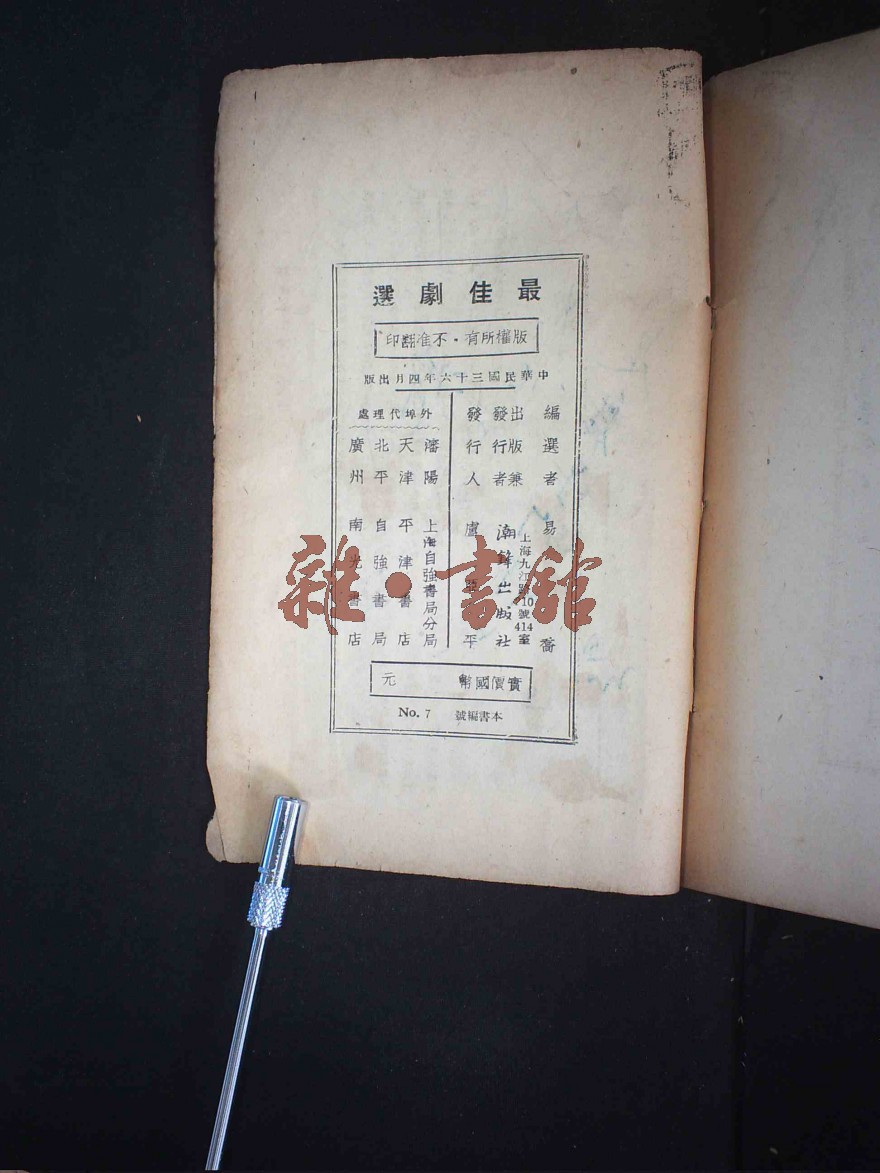 最佳劇選
版權所有·不准翻印
中華民國三十六年四月出版
編選者 易喬
出版兼發行者 潮鋒出版社
上海九江路210號414室
發行人 盧平
外埠代理處
瀋陽 上海自強書局分局
天津 平津書店
北平 自強書局
廣州 南光書店
實價國幣 元
本書編號 No. 7
雜·書館